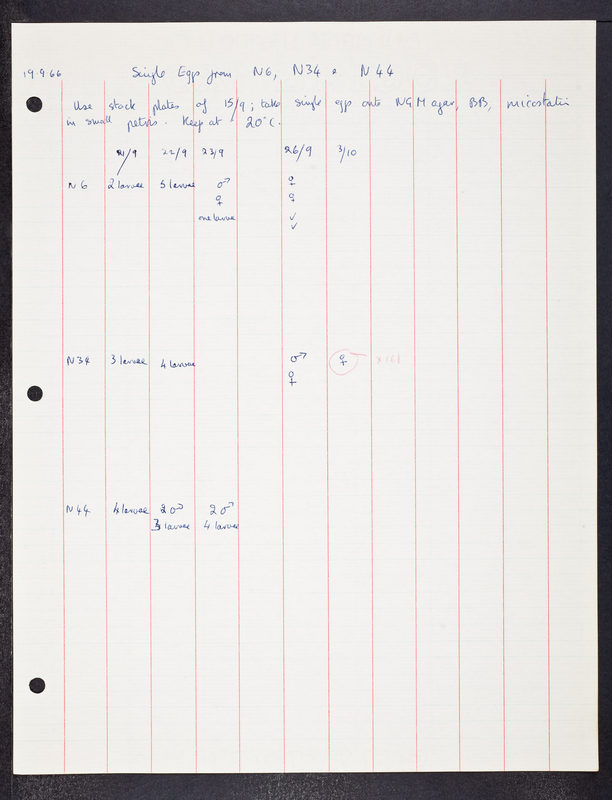 19.9.66 Single Eggs from N6, N34 & N44
Use stock plates of 15/9; take single eggs onto NGM agar, BB, micostatin
in small petris. Keep at 20°C.
21/9 22/9 23/9 26/9 3/10
N6 2 larvae 5 larvae ♂ ♀
♀ ♀
one larvae ✓
✓
N34 3 larvae 4 larvae ♂ ♀
♀
N44 4 larvae 2♂ 2♂
3 larvae 4 larvae